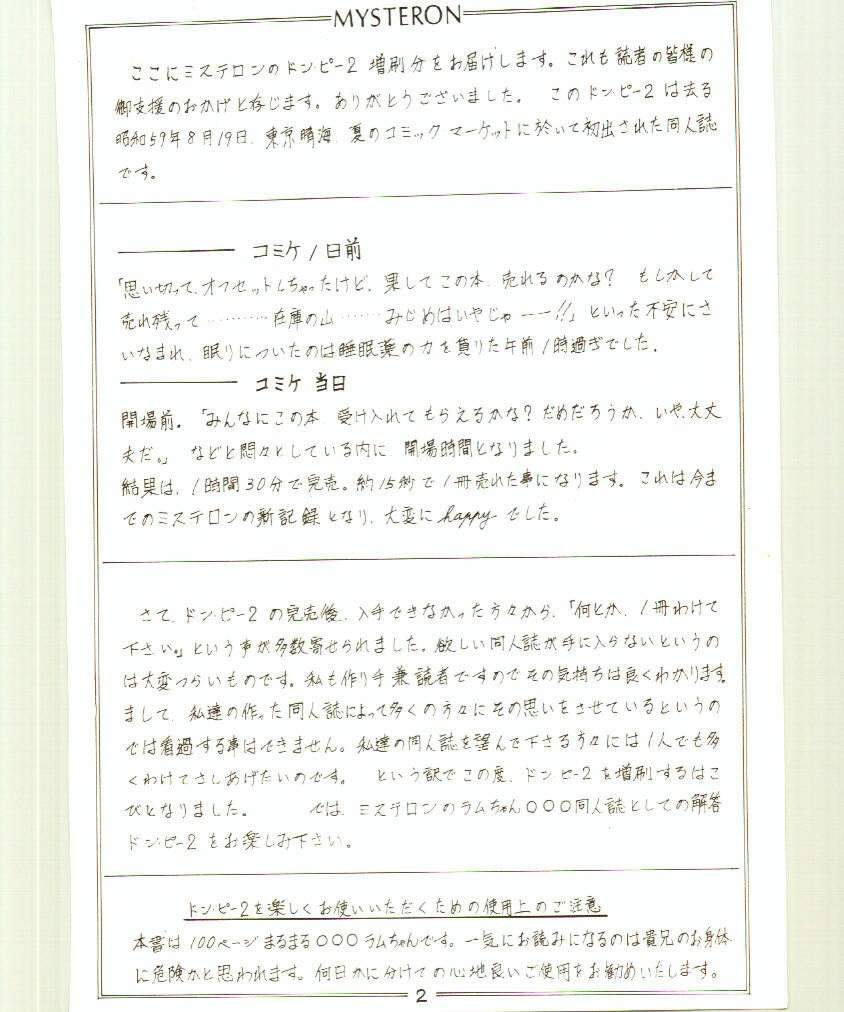 MYSTERON
ここにミステロンのドン・ピー2 増刷分をお届けします。これも読者の皆様の
御支援のおかげと存じます。ありがとうございました。 このドン・ピー2は去る
昭和59年8月19日、東京晴海、夏のコミックマーケットに於いて初出された同人誌
です。
コミケ1日前
「思い切って、オフセットしちゃったけど、果してこの本、売れるのかな? もしかして
売れ残って…………在庫の山………みじめはいやじゃーー!!」といった不安にさ
いなまれ、眠りについたのは睡眠薬の力を借りた午前1時過ぎでした。
コミケ当日
開場前。「みんなにこの本、受け入れてもらえるかな?だめだろうか、いや、大丈
夫だ。」などと悶々としている内に、開場時間となりました。
結果は、1時間30分で完売。約15秒で1冊売れた事になります。これは今ま
でのミステロンの新記録となり、大変にhappyでした。
さて、ドン・ピー2の完売後、入手できなかった方々から、「何とか、1冊わけて
下さい。」という声が多数寄せられました。欲しい同人誌が手に入らないというの
は大変つらいものです。私も作り手兼読者ですのでその気持ちは良くわかります。
まして、私達の作った同人誌によって多くの方々にその思いをさせているというの
では看過する事はできません。私達の同人誌を望んで下さる方々には1人でも多
くわけてさしあげたいのです。 という訳でこの度、ドン・ピー2を増刷するはこ
びとなりました。 では、ミステロンのラムちゃん○○○同人誌としての解答
ドン・ピー2をお楽しみ下さい。
ドン・ピー2を楽しくお使いいただくための使用上のご注意
本書は100ページまるまる○○○ラムちゃんです。一気にお読みになるのは貴兄のお身体
に危険かと思われます。何日かに分けての心地良いご使用をお勧めいたします。
2